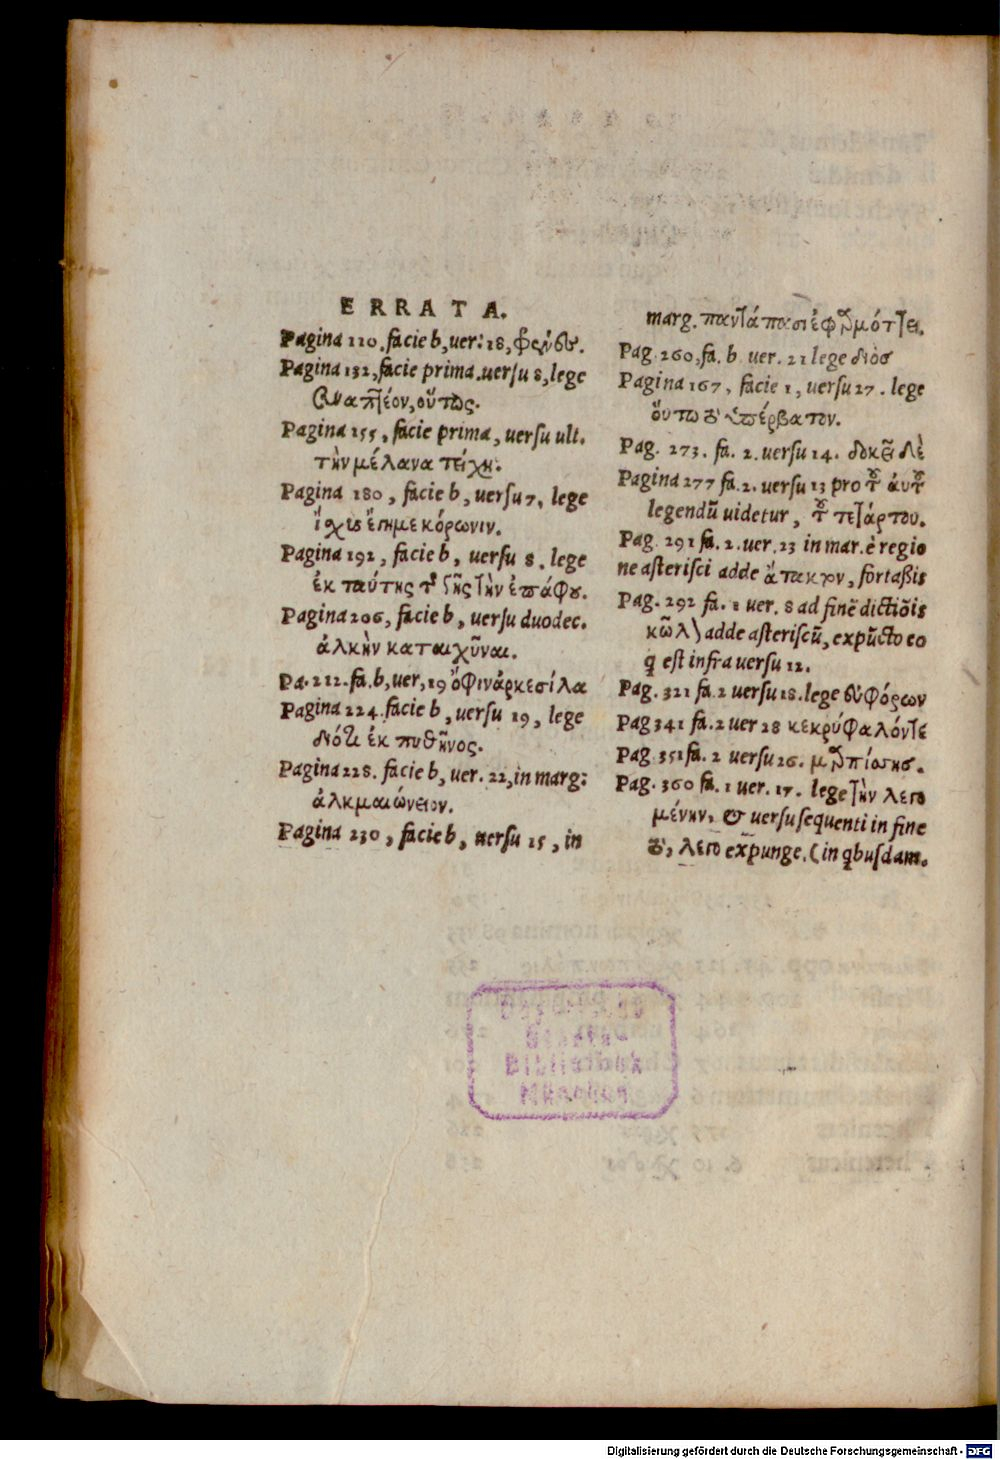 ERRATA.
Pagina 110. facie b, uer: 18,
Pagina 132, facie prima. uersu 8, lege
οὕτως.
Pagina 155, facie prima, uersu ult.
τὴν μέλανα τείχη.
Pagina 180, facie b, uersu 7, lege
κόρωνιν.
Pagina 192, facie b, uersu 8. lege
ἐκ ταύτης τῆς
Pagina 206, facie b, uersu duodec.
ἀλκὴν καταιχῦναι.
Pa. 212. fa. b, uer, 19 ὄφιν ἀρκεσίλα
Pagina 224. facie b, uersu 19, lege
διότι ἐκ πυθῆνος.
Pagina 228. facie b, uer. 22, in marg:
ἀλκμαιώνειον.
Pagina 230, facie b, uersu 15, in
marg. παντάπασι
Pag. 260, fa. b. uer. 21 lege διὸς
Pagina 167, facie 1, uersu 27. lege
οὕτω
Pag. 273. fa. 2. uersu 14. δοκεῖ δὲ
Pagina 277 fa. 2. uersu 13 pro τοῦ αὐτοῦ
legendū uidetur, τοῦ τετάρτου.
Pag. 291 fa. 2. uer. 23 in mar. è regio
ne asterisci adde fortaßis
Pag. 292 fa. 1 uer. 8 ad finē dictiõis
κῶλ) adde asteriscū, expūcto eo
q̃ est infra uersu 12.
Pag. 321 fa. 2 uersu 18. lege εὐφόρων
Pag 341 fa. 2 uer 28 κεκρύφαλόν τε
Pag. 351 fa. 2 uersu 26.
Pag. 360 fa. 1 uer. 17. lege τὴν λεγο
μένην, & uersu sequenti in fine
λεγο expunge. (in q̃busdam.
Digitalisierung gefördert durch die Deutsche Forschungsgemeinschaft - DFG